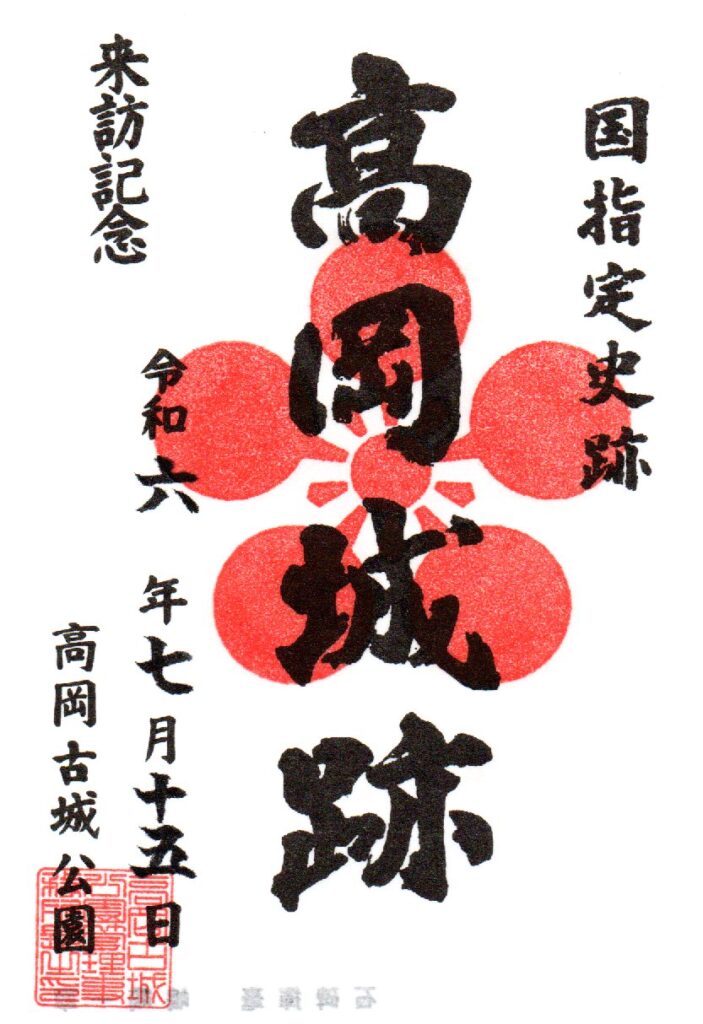 国指定史跡
髙岡城跡
来訪記念
令和六年七月十五日
高岡古城公園